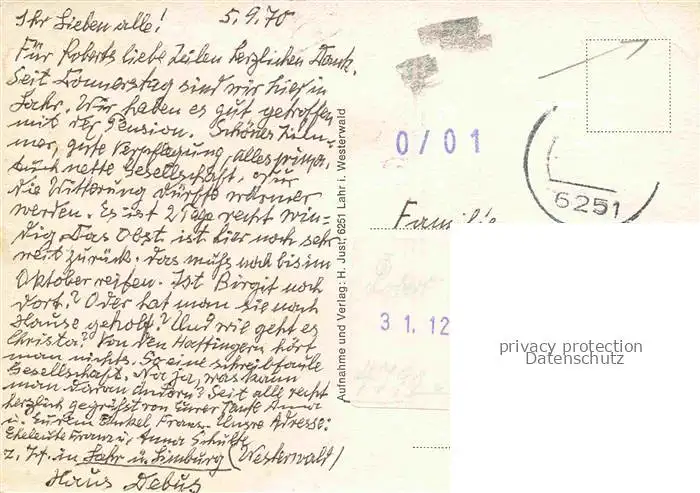 Ihr Lieben alle! 5.9.70
Für Roberts liebe Zeilen herzlichen Dank.
Seit Donnerstag sind wir hier in
Lahr. Wir haben es gut getroffen
mit der Pension. Schönes Zim-
mer, gute Verpflegung, alles prima,
auch nette Gesellschaft. Nur
die Witterung dürfte wärmer
werden. Es ist 2 Tage recht win-
dig. Das Obst ist hier noch sehr
weit zurück. Das muß noch bis im
Oktober reifen. Ist Birgit noch
dort? Oder hat man sie nach
Hause geholt? Und wie geht es
Christa? Von den Hattingern hört
man nichts. So eine schreibfaule
Gesellschaft. Na ja, was kann
man daran ändern? Seit alle recht
herzlich gegrüßt von Eurer Tante Anna
u. Eurem Onkel Franz. Unsre Adresse:
Eheleute Franz u. Anna Schulte
z. Zt. in Lahr u. Limburg (Westerwald)
Haus Debus
Aufnahme und Verlag: H. Just, 6251 Lahr i. Westerwald
0/01
6251
Familie
31.12
privacy protection
Datenschutz